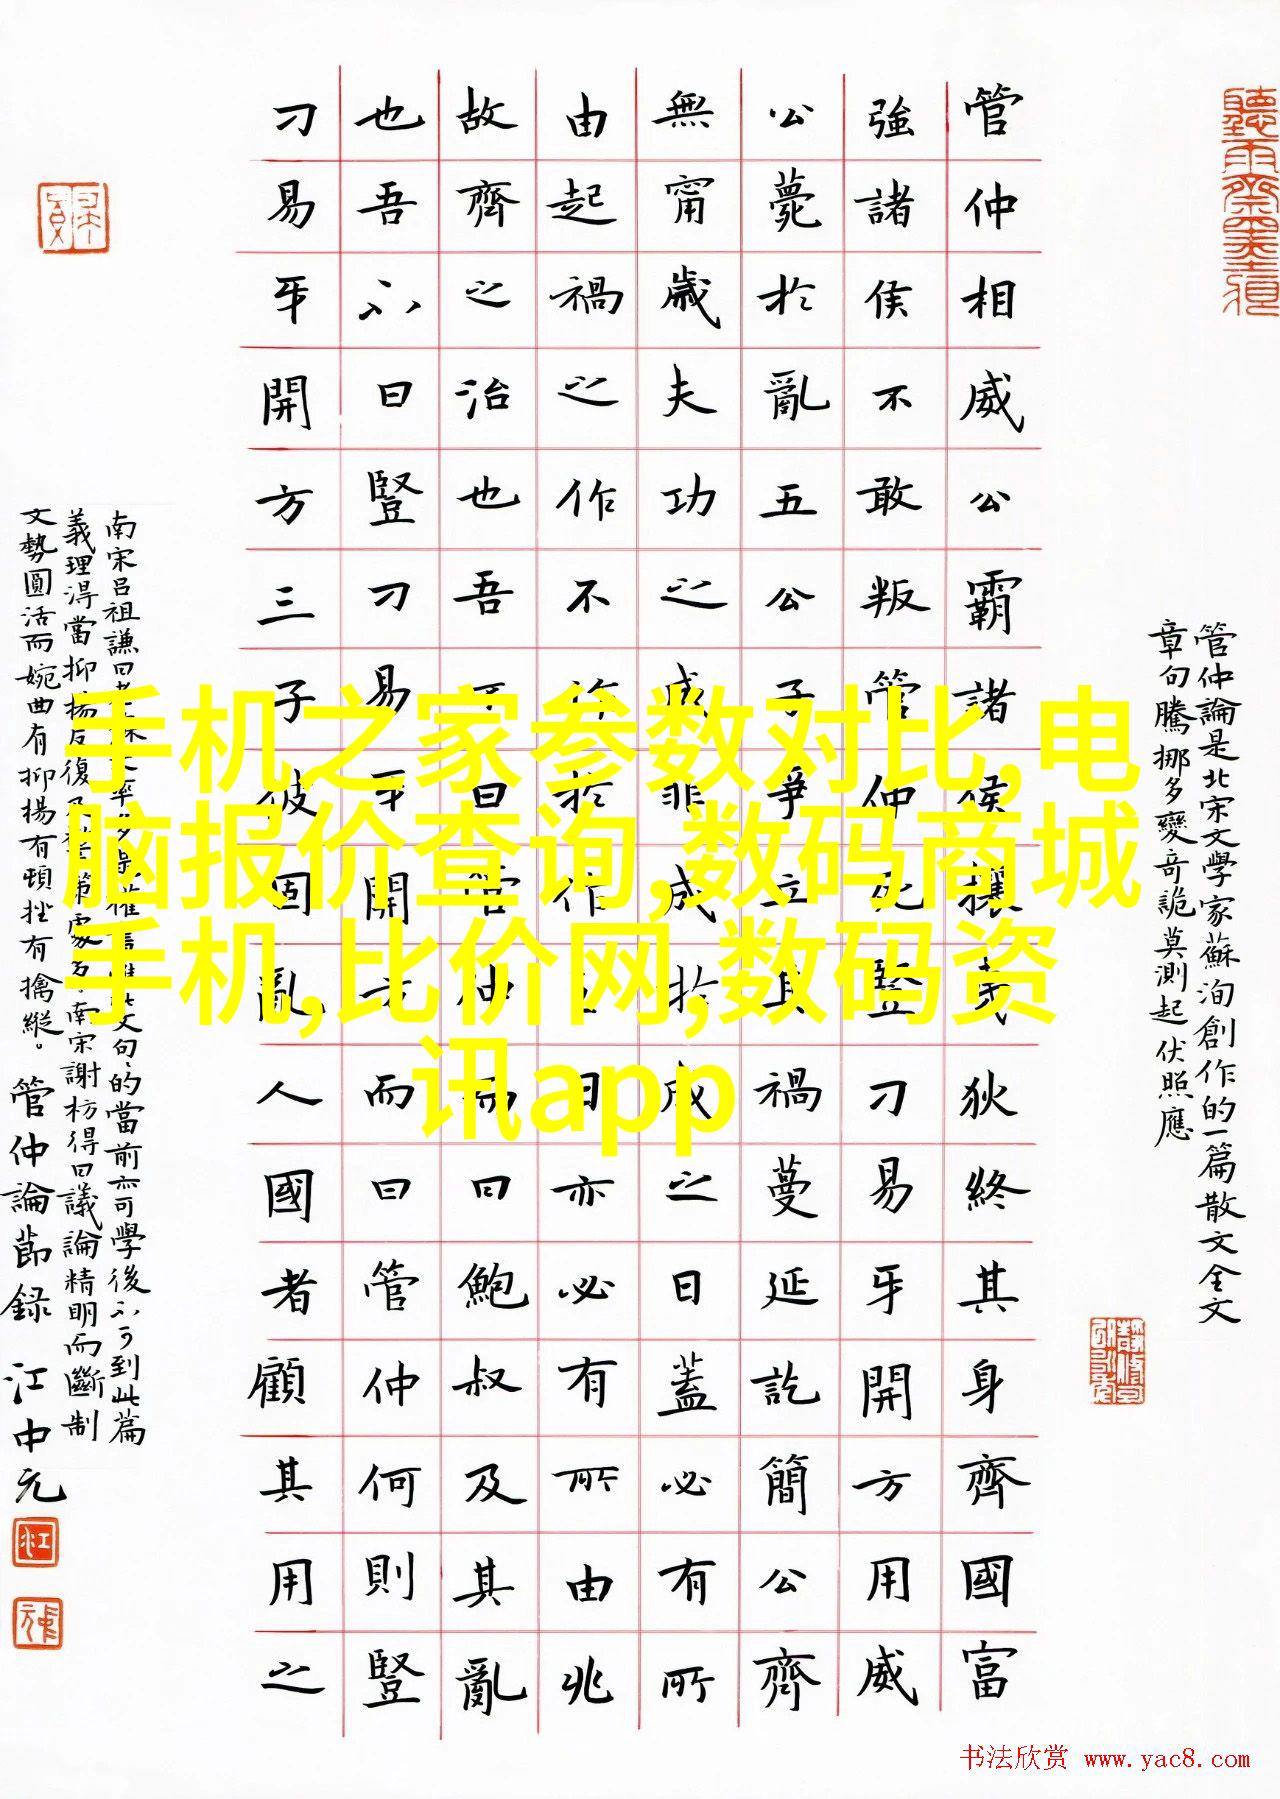 聽雨齋墨
管仲論是北宋文學家蘇洵創作的一篇散文全文
章句騰挪多變奇詭莫測起伏照應
管仲相威公霸諸侯攘戎狄終其身齊國富
強諸侯不敢叛管仲死豎刁易牙開方用威
公薨於亂五公子爭立其禍蔓延訖簡公齊
無甯歲夫功之成非成於成之日蓋必有所
由起禍之作不作於作之日亦必有所由兆
故齊之治也吾不曰管仲而曰鮑叔及其亂
也吾不曰豎刁易牙開方而曰管仲何則豎
刁易牙開方三子彼固亂人國者顧其用之
南宋呂祖謙曰老蘇文率多惟此文句句的當前亦可學後不可到此篇
義理淂當抑揚反復及警策處多南宋謝枋得曰議論精明而斷制
文勢圓活而婉曲有抑揚有頓挫有擒縱。管仲論節錄 江中元
手机之家参数对比,电
脑报价查询,数码商城
手机,比价网,数码资
讯app
书法欣赏 www.yac8.com